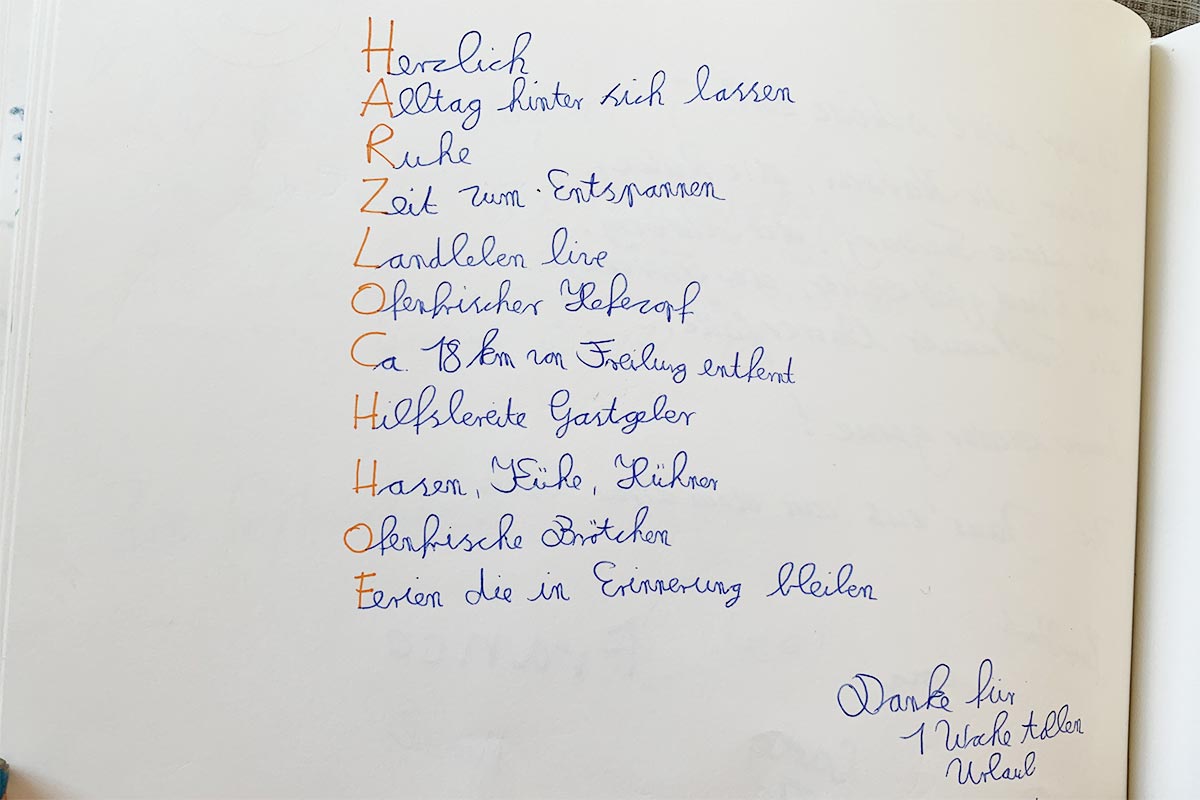 Herzlich
Alltag hinter sich lassen
Ruhe
Zeit zum Entspannen
Landleben live
Ofenfrischer Hefezopf
Ca. 18 km von Freiburg entfernt
Hilfsbereite Gastgeber
Hasen, Kühe, Hühner
Ofenfrische Brötchen
Ferien die in Erinnerung bleiben
Danke für
1 Woche
Urlaub